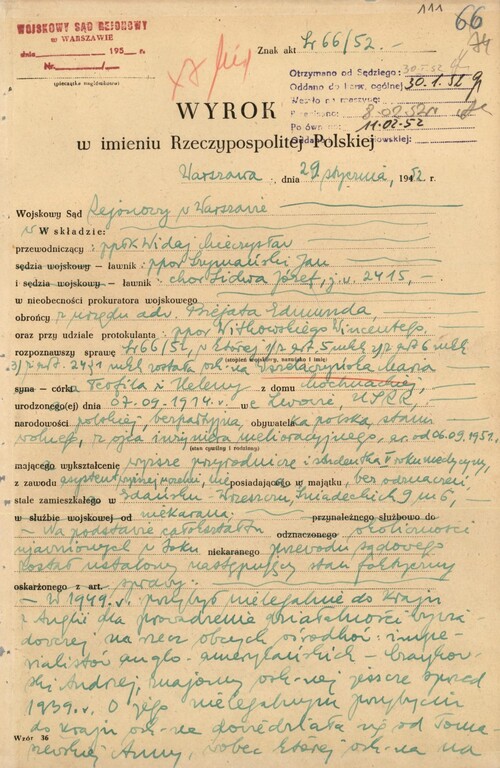 111
66
74
WOJSKOWY SĄD REJONOWY
w WARSZAWIE
dnia 195 r.
Nr. /
(pieczątka nagłówkowa)
Znak akt Sr 66/52. -
Otrzymano od Sędziego: 30.I.52
Oddano do kanc. ogólnej 30.1.52
Weszło na maszynę: 8-02-52
Po 11-02-52
WYROK
w imieniu Rzeczypospolitej Polskiej
Warszawa, dnia 29 stycznia, 1952 r.
Wojskowy Sąd Rejonowy w Warszawie
w W składzie:
przewodniczący: ppłk Widaj Mieczysław
sędzia wojskowy — ławnik: ppor Szymański Jan
i sędzia wojskowy — ławnik: chor Lidwa Józef, j.w. 2415, -
w nieobecności prokuratora wojskowego
obrońcy z urzędu adv. Biejata Edmunda,
oraz przy udziale protokulanta ppor Witkowskiego Wincentego,
rozpoznawszy sprawę Sr 66/52, w której
(stopień wojskowy, nazwisko i imię)
została osk-na Maria
syna — córka Teofila i Heleny z domu Mochnackiej,
urodzonego(ej) dnia 07.09.1914.r. we Lwowie, USRR,
narodowości polskiej, bezpartyjna, obywatelka polska, stanu
wolnego, z ojca inżyniera melioracyjnego, ar. od 06.09.1951,
(stan cywilny i rodzinny)
mającego wykształcenie wyższe przyrodnicze i studentka V roku medycyny,
z zawodu nie posiadającego w majątku, bez odznaczeń
stale zamieszkałego w Gdańsku-Wrzeszczu, Śniadeckich 9 m 6,
w służbie wojskowej od niekarana: przynależnego służbowo do
- Na podstawie całokształtu odznaczonego okoliczności
ujawnionych w toku niekaranego przewodu sądowego
został ustalony następujący stan faktyczny
oskarżonego z art. sprawy:
- W 1949.r. przybył nielegalnie do kraju
z Anglii dla prowadzenia działalności wywia-
dowczej na rzecz obcych ośrodków impe-
rialistów anglo-amerykańskich -
ski Andrzej, znajomy osk-nej jeszcze sprzed
1939.r. O jego nielegalnym przybyciu
do kraju osk-na dowiedziała się od Toma-
szewskiej Anny, wobec której osk-na na
Wzór 36